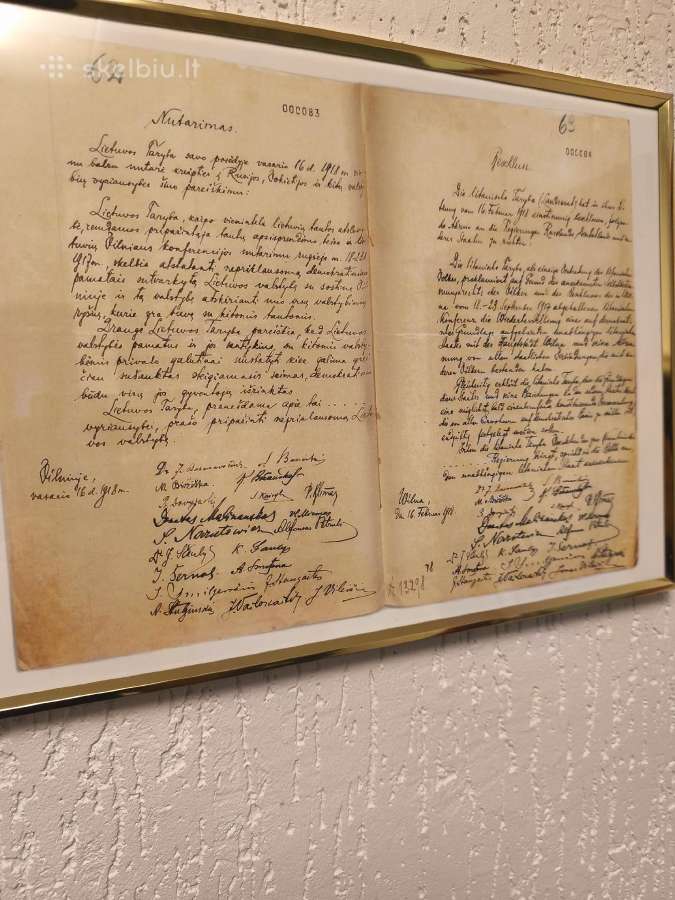 skelbiu.lt
62
000083
Nutarimas.
Lietuvos Taryba savo posėdyje vasario 16 d. 1918 m. vie-
nu balsu nutarė kreiptis į Rusijos, Vokietijos ir kitų valsty-
bių vyriausybes šiuo pareiškimu:
Lietuvos Taryba, kaipo vienintelė lietuvių tautos atstovy-
bė, remdamos pripažintąja tautų apsisprendimo teise ir lie-
tuvių Vilniaus konferencijos nutarimu rugsėjo m. 18-23 d.
1917 m., skelbia atstatanti nepriklausomą demokratiniais
pamatais sutvarkytą Lietuvos valstybę su sostine Vil-
niuje ir tą valstybę atskirianti nuo visų valstybinių
ryšių, kurie yra buvę su kitomis tautomis.
Drauge Lietuvos Taryba pareiškia, kad Lietuvos
valstybės pamatus ir jos santykius su kitomis valsty-
bėmis privalo galutinai nustatyti kiek galima grei-
čiau sušauktas steigiamasis seimas, demokratiniu
būdu visų jos gyventojų išrinktas.
Lietuvos Taryba, pranešdama apie tai . . . . .
vyriausybei, prašo pripažinti nepriklausomą Lietu-
vos valstybę.
Vilniuje,
vasario 16 d. 1918 m.
Dr. J. Basanavičius
M. Biržiška
S. Banaitis
K. Bizauskas
P. Dovydaitis
S. Kairys
P. Klimas
Donatas Malinauskas
Vl. Mironas
S. Narutowicz
Alfonsas Petrulis
Dr. J. Šaulys
K. Šaulys
J. Šernas
A. Smetona
J. Smilgevičius
J. Staugaitis
A. Stulginskis
J. Vailokaitis
J. Vileišis
63
000084
Die litauische Taryba (Landesrat) hat in ihrer Sit-
zung vom 16 Februar 1918 einstimmig beschlossen, folgen-
de an die Regierungen Russlands, Deutschlands und an-
derer Staaten zu richten:
Die litauische Taryba, als einzige Vertretung des litauischen
Volkes, proklamiert auf Grund des anerkannten Selbstbestim-
mungsrechts der Völker und des Beschlusses der in Wil-
na vom 18.-23 September 1917 abgehaltenen litauischen
Konferenz die Wiederherstellung eines auf demokrati-
scher Grundlage aufgebauten unabhängigen litauischen
Staates mit der Hauptstadt Wilna und seine Abtren-
nung von allen staatlichen Verbindungen, die mit an-
deren Völkern bestanden haben.
Gleichzeitig erklärt die litauische Taryba, dass die Grundlagen
dieses Staates und seine Beziehungen zu den anderen Staaten
Wilna,
den 16 Februar 1918
Dr. J. Basanavičius
M. Biržiška
S. Banaitis
Donatas Malinauskas
S. Narutowicz
Dr. J. Šaulys
K. Šaulys
J. Šernas
A. Smetona
J. Staugaitis
J. Vailokaitis